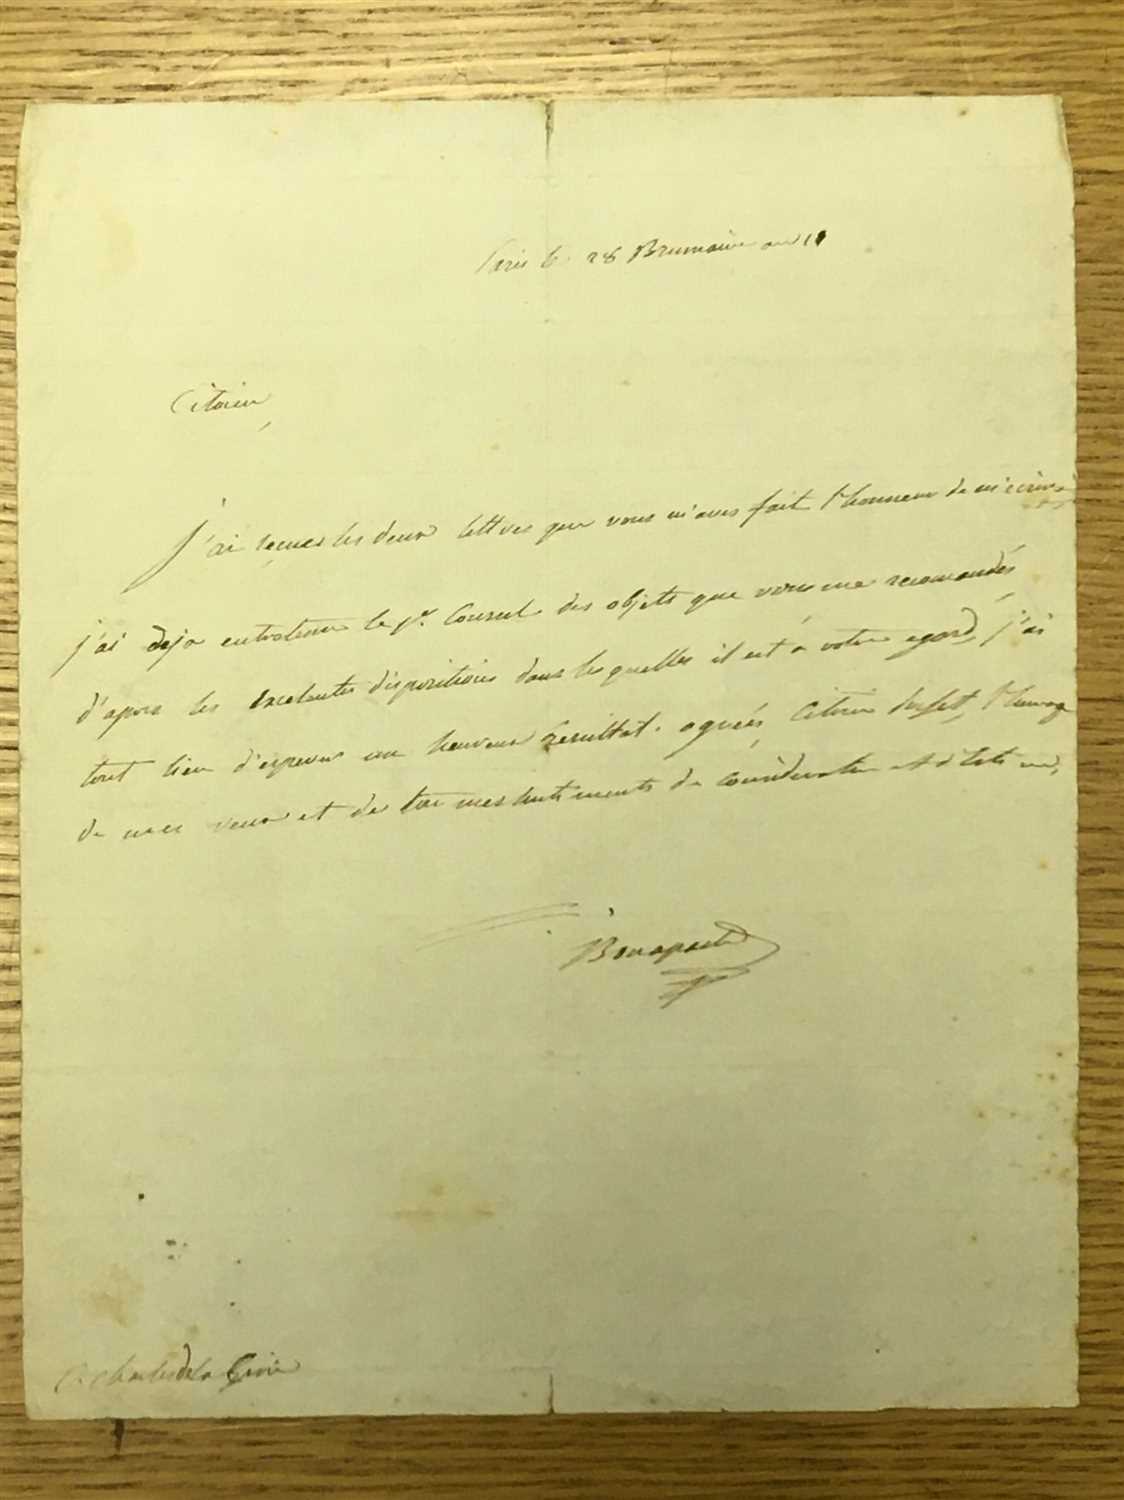 Paris le 28 Brumaire an 11
Citoien,
J'ai reçues les deux lettres que vous m'aves fait l'honneur de m'ecrire
j'ai deja entretenu le pr. Consul des objets que vous me recomandés
d'apres les excelentes dispositions dans les quelles il est à votre egard, j'ai
tout lieu d'esperer un heureux resultat. agréés, Citoien l'homage
de mes voeux et de tous mes sentiments de consideration
Bonaparte
Cn Charles de la